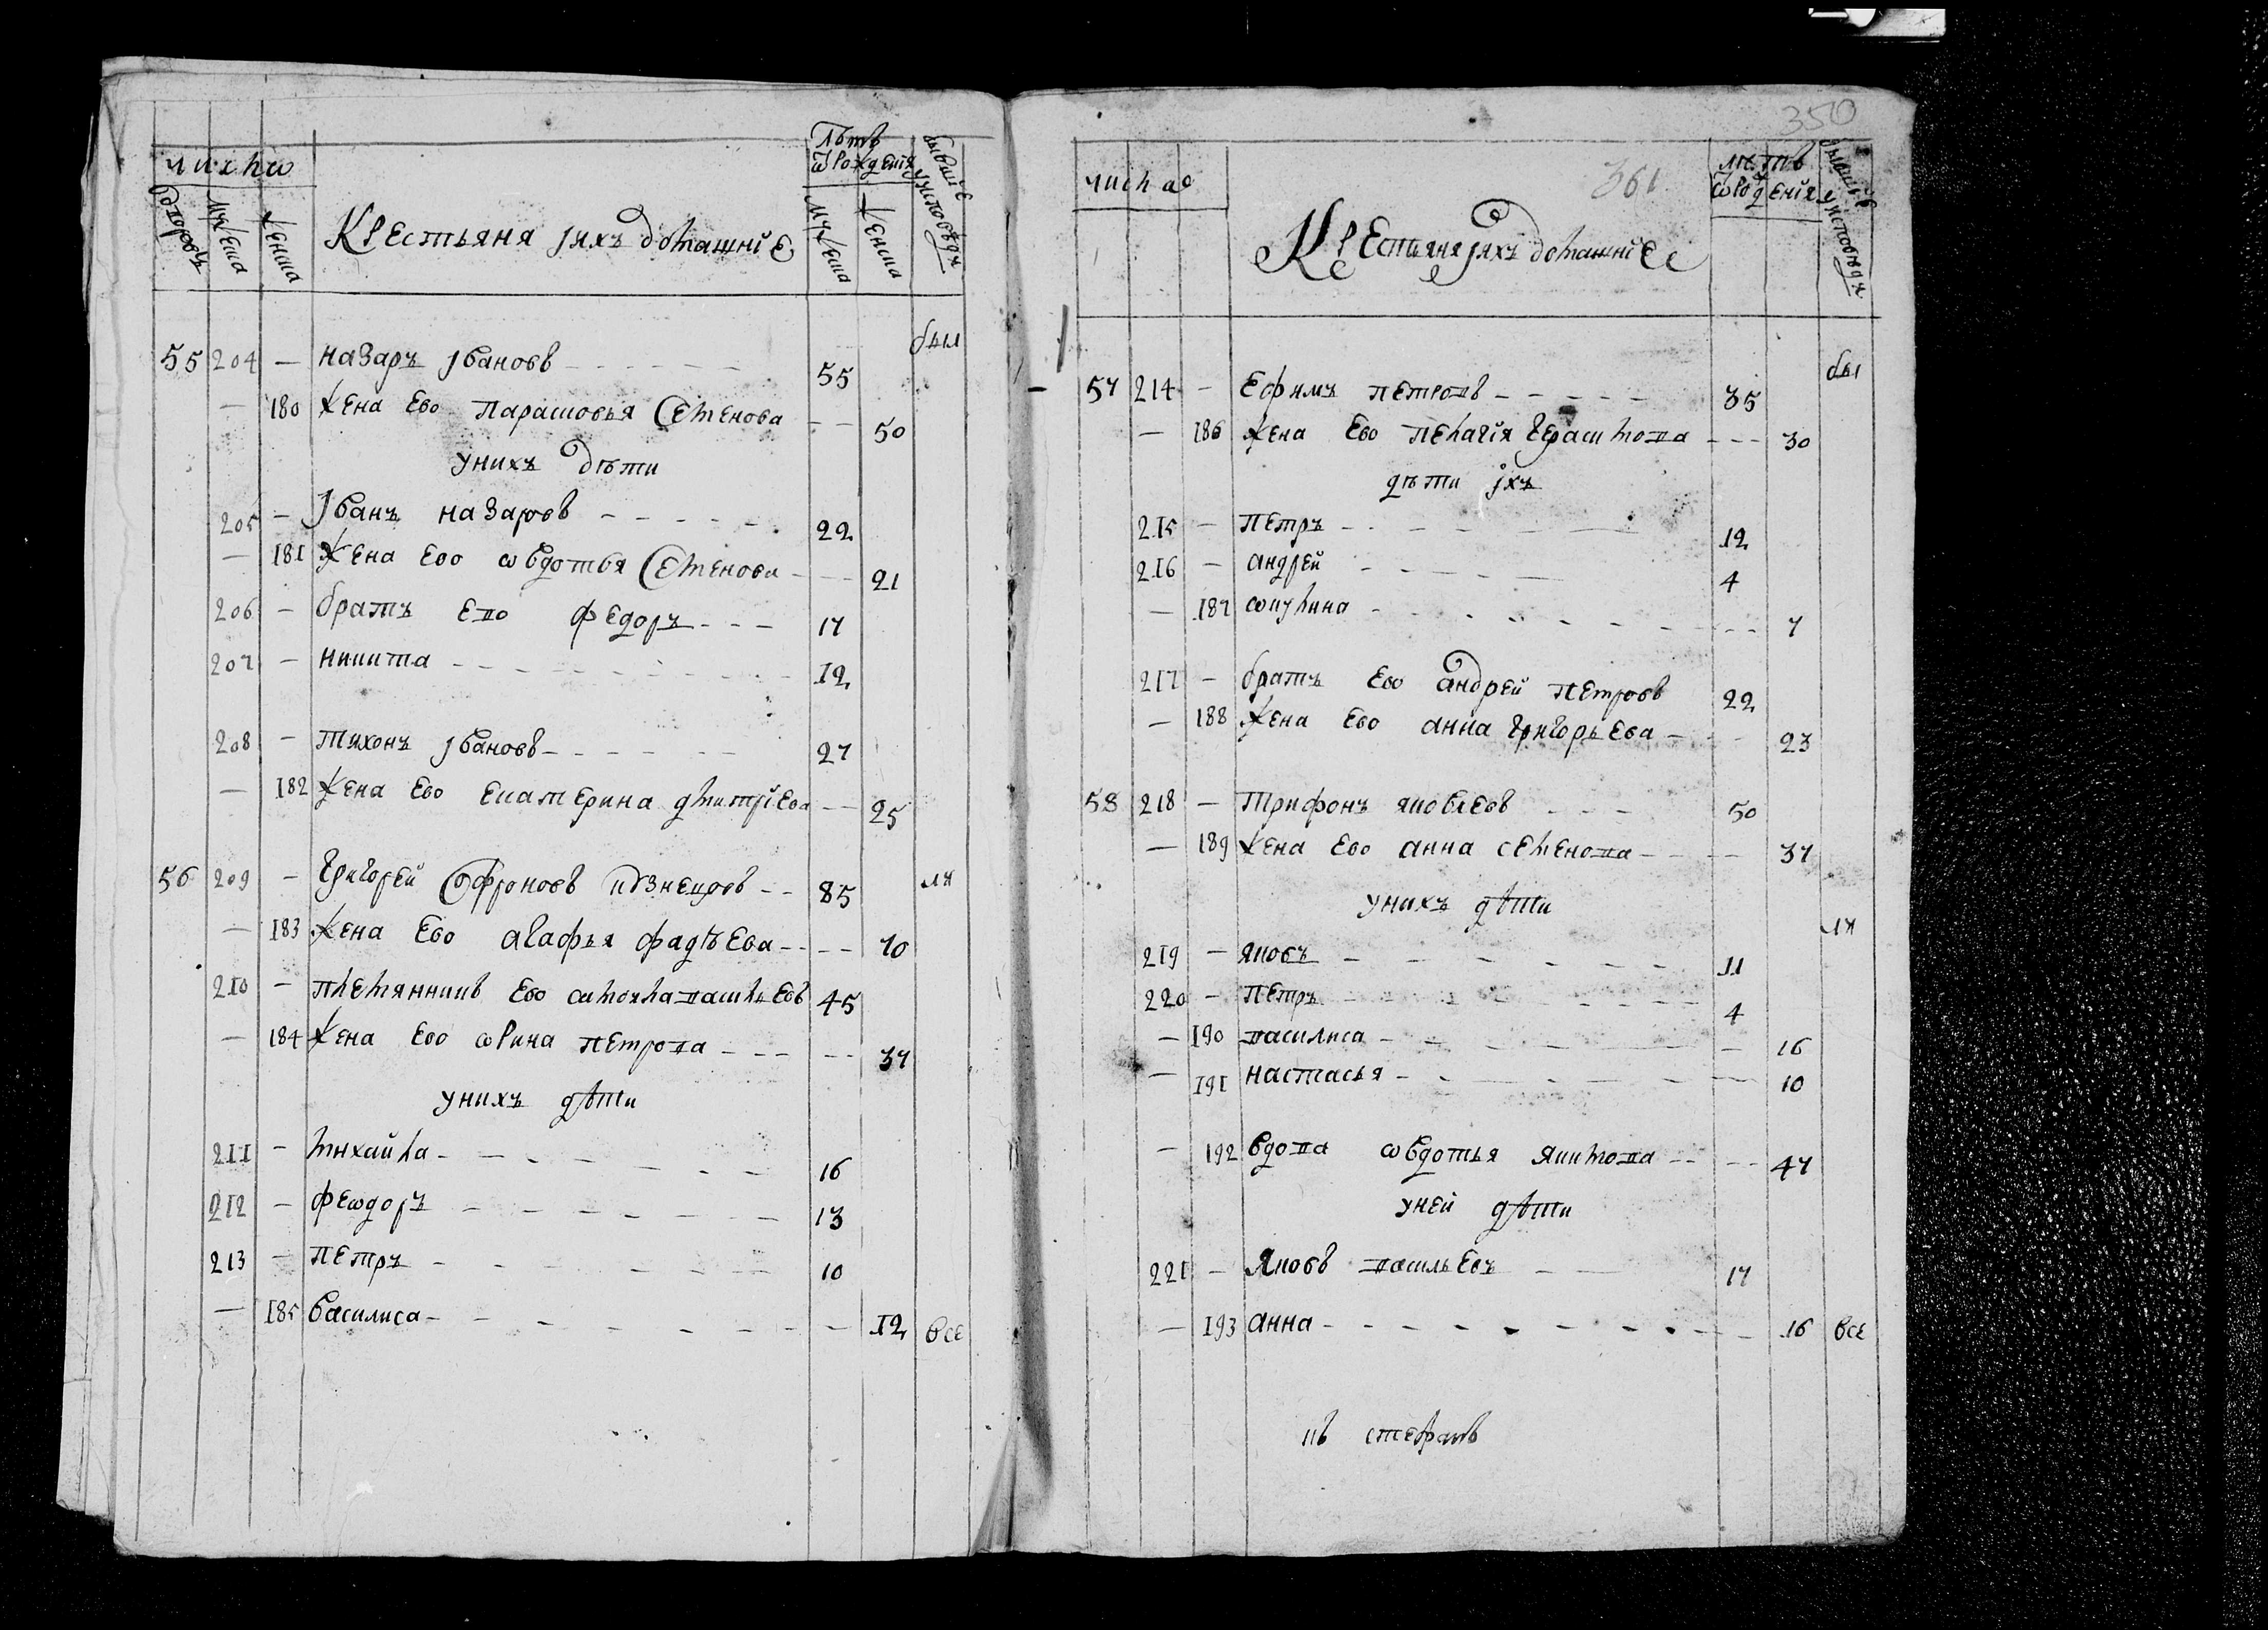 числа
дворовъ мужеска женска
Крестьяня ихъ домашнiе
лѣтъ ѿ рожденiя
мужеска женска
бывшiе у исповеди
был
55 204 — назаръ ивановъ - - - - 55
— 180 жена ево парасковья семенова - - 50
у нихъ дѣти
205 — иванъ назаровъ - - - - 22
— 181 жена ево ѡвдотья семенова - - - 21
206 — братъ ево федоръ - - - 17
207 — никита - - - - 12
208 — тихонъ ивановъ - - - - 27
— 182 жена ево екатерина дмитрiева - - 25
56 209 — григорей софроновъ кузнецовъ - - 85 ли
— 183 жена ево агафья фадѣева - - - 70
210 — племянникъ ево самойла васильевъ 45
— 184 жена ево ѡрина петрова - - - 37
у нихъ дѣти
211 — михайла - - - - 16
212 — феѡдоръ - - - - 13
213 — петръ - - - - 10
— 185 василиса - - - - 12 все
350
361
числа
Крестьяня ихъ домашнiе
лѣтъ ѿ рожденiя
бывшiе у исповеди
бы
57 214 — ефимъ петровъ - - - - 35
— 186 жена ево пелагiя герасимова - - - 30
дѣти ихъ
215 — петръ - - - - 12
216 — андрей - - - - 4
— 187 акулина - - - - 7
217 — братъ ево андрей петровъ 22
— 188 жена ево анна григорьева - - 23
58 218 — трифонъ яковлевъ - - - 50
— 189 жена ево анна семенова - - - 37
у нихъ дѣти
ли
219 — яковъ - - - - 11
220 — петръ - - - - 4
— 190 василиса - - - - 16
— 191 настасья - - - - 10
— 192 вдова ѡвдотья якимова - - - 47
у ней дѣти
221 — яковъ васильевъ - - 17
— 193 анна - - - - 16 все
къ